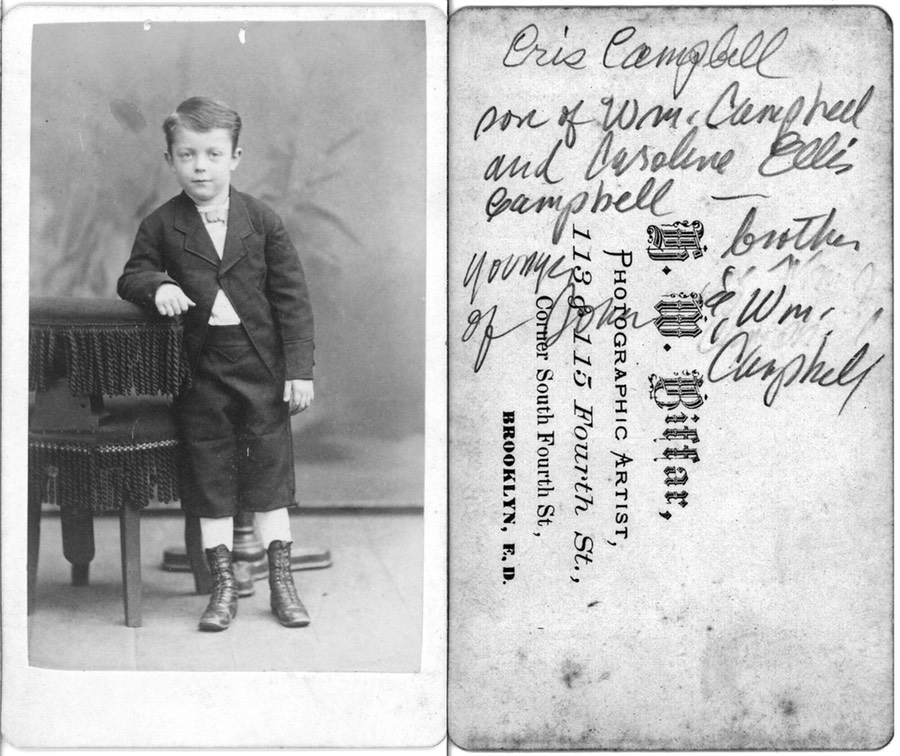 Cris Campbell
son of Wm. Campbell
and Caroline Ellis
Campbell —
younger brother
of John & Wm.
Campbell
H. W. Biffar,
PHOTOGRAPHIC ARTIST,
113 & 115 Fourth St.,
Corner South Fourth St,
BROOKLYN, E. D.